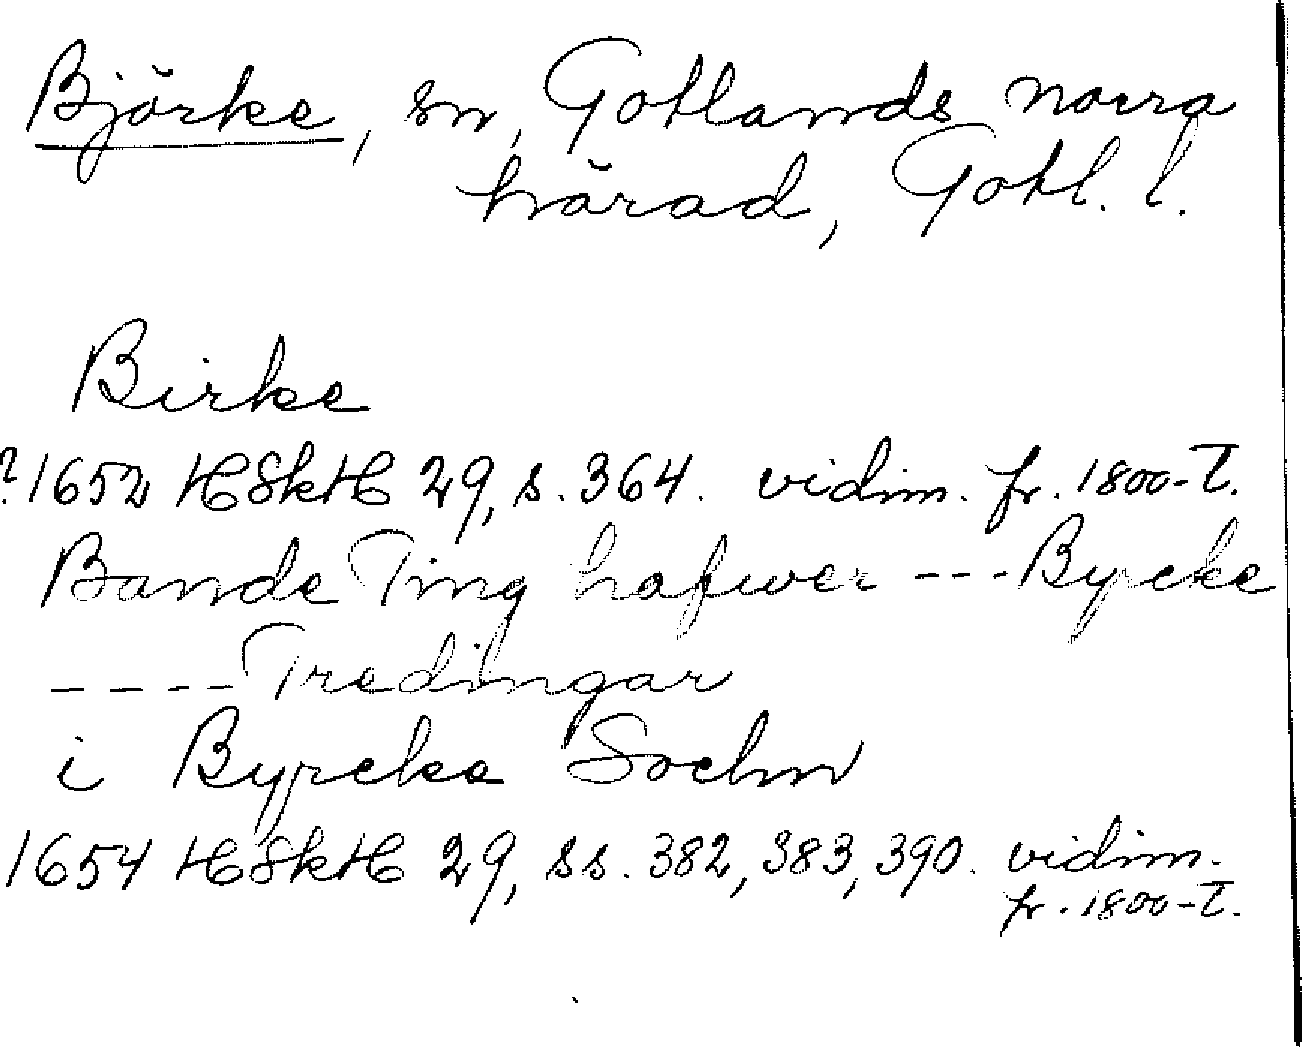 Björke, sn, Gotlands norra
härad, Gotl. l.
Birke
?1652 HSkH 29, s. 364. vidim. fr. 1800-T.
Bande Ting hafwer --- Byrcke
---- Tredingar
i Byrcke Sochn
1654 HSkH 29, ss. 382, 383, 390. vidim.
fr. 1800-T.